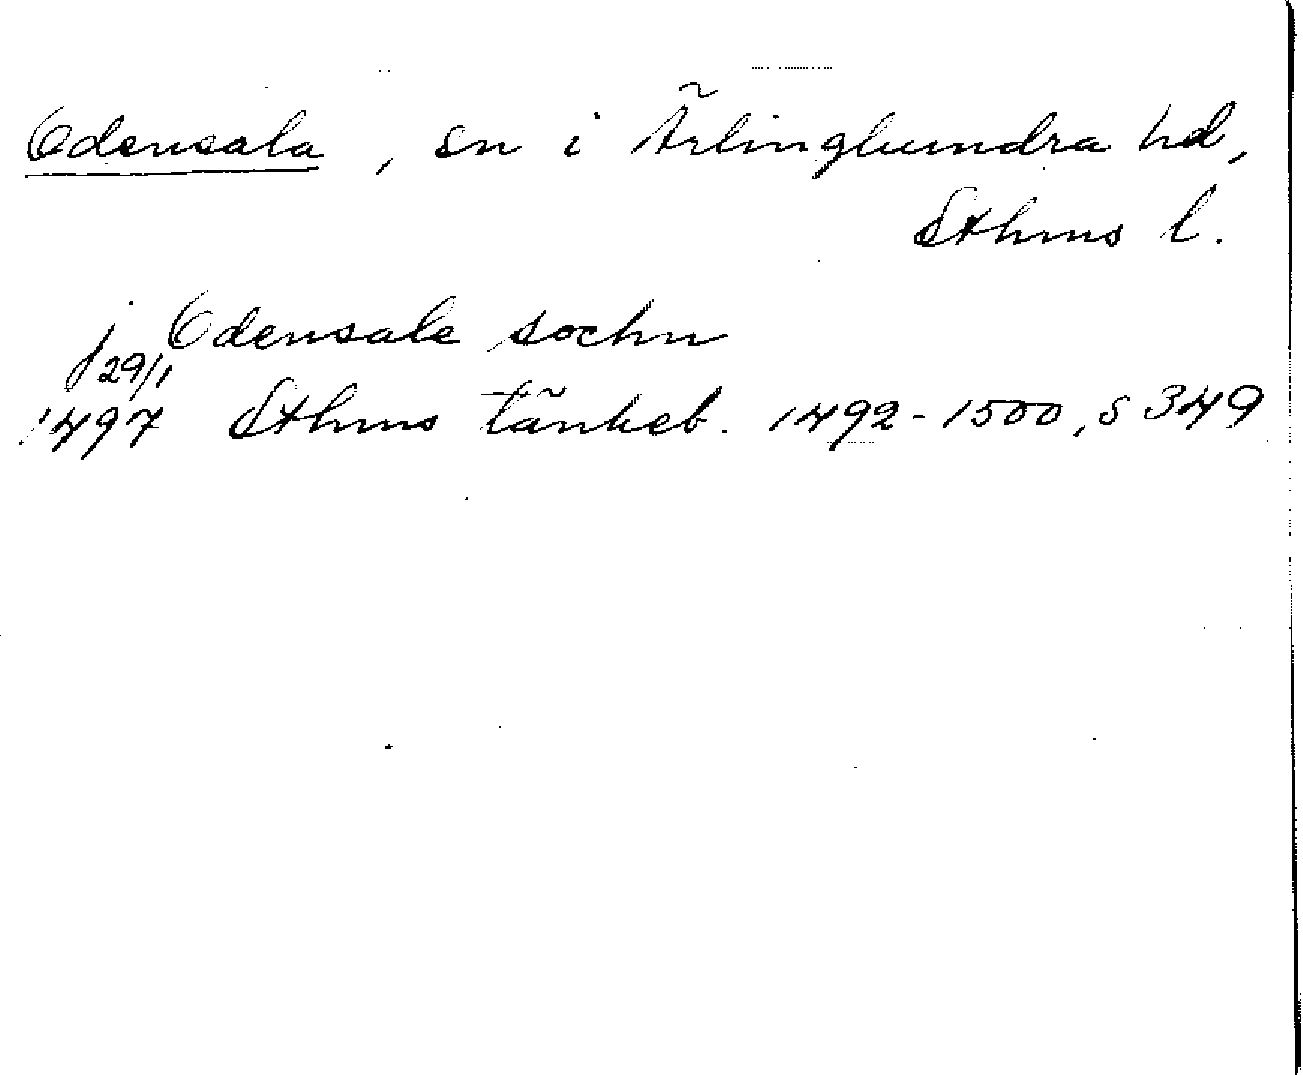 Odensala, sn i Ärlinghundra hd,
Sthms l.
j Odensale sochn
29/1
1497 Sthms tänkeb. 1492-1500, s 349